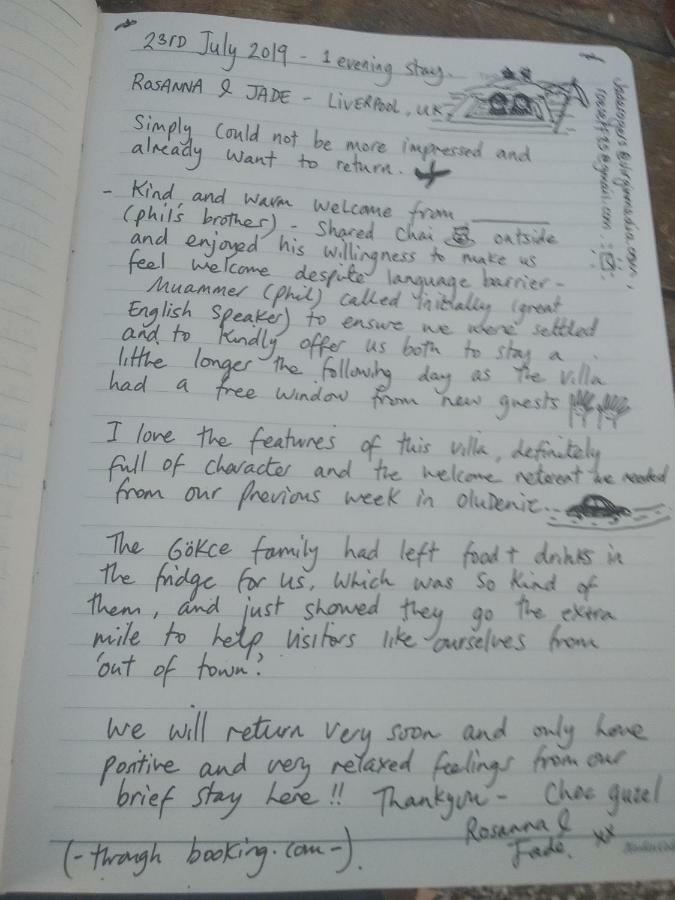 23RD July 2019 - 1 evening stay.
ROSANNA & JADE - LIVERPOOL, UK
Simply could not be more impressed and
already want to return.
- Kind and warm welcome from ________
(Phil's brother) - Shared Chai outside
and enjoyed his willingness to make us
feel welcome despite language barrier -
Muammer (Phil) called initially (great
English Speaker) to ensure we were settled
and to kindly offer us both to stay a
little longer the following day as the villa
had a free window from new guests
I love the features of this villa, definitely
full of character and the welcome retreat we needed
from our previous week in OluDeniz...
The Gökce family had left food + drinks in
the fridge for us, which was so kind of
them, and just showed they go the extra
mile to help visitors like ourselves from
'out of town'.
We will return very soon and only have
positive and very relaxed feelings from our
brief stay here !! Thankyou - Choc guzel
Rosanna &
Jade. xx
(- through booking.com -).